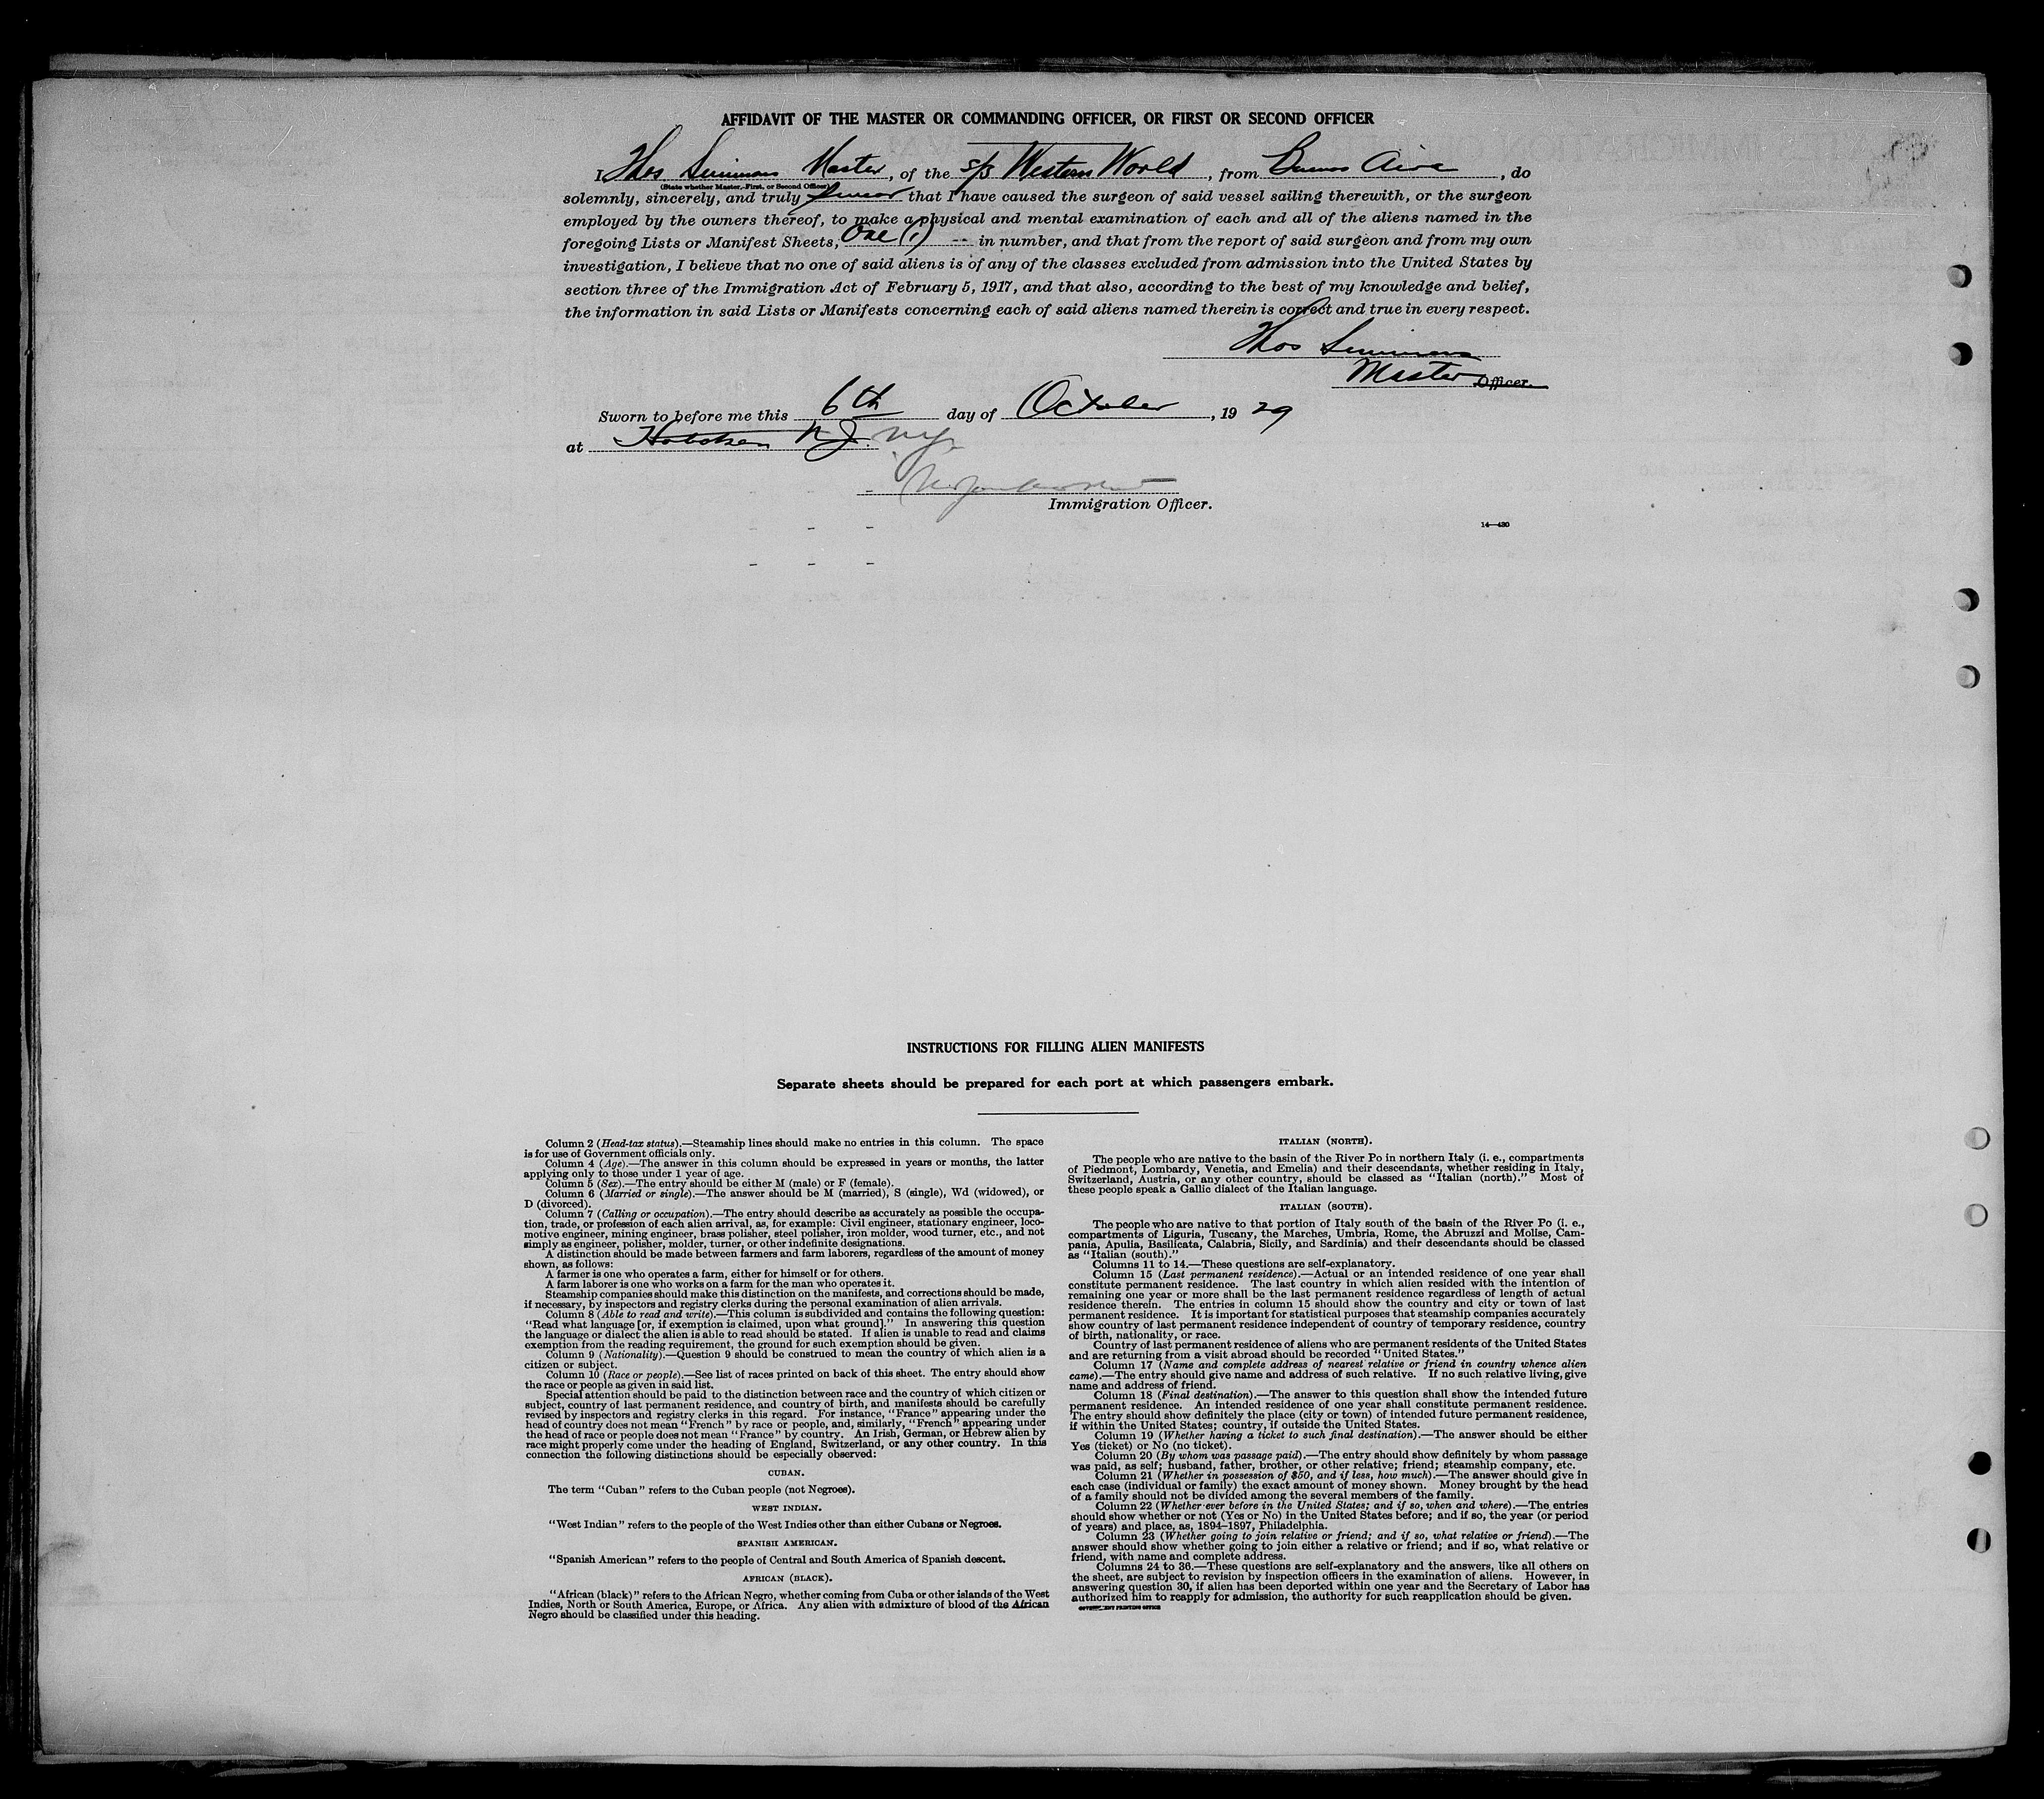 AFFIDAVIT OF THE MASTER OR COMMANDING OFFICER, OR FIRST OR SECOND OFFICER
I, Thos Simmons Master, of the s/s Western World, from Buenos Aires, do
(State whether Master, First, or Second Officer)
solemnly, sincerely, and truly swear that I have caused the surgeon of said vessel sailing therewith, or the surgeon
employed by the owners thereof, to make a physical and mental examination of each and all of the aliens named in the
foregoing Lists or Manifest Sheets, One (1) -- in number, and that from the report of said surgeon and from my own
investigation, I believe that no one of said aliens is of any of the classes excluded from admission into the United States by
section three of the Immigration Act of February 5, 1917, and that also, according to the best of my knowledge and belief,
the information in said Lists or Manifests concerning each of said aliens named therein is correct and true in every respect.
Thos Simmons
Master Officer.
Sworn to before me this 6th day of October, 1929
at Hoboken N.J. N.Y.
Immigration Officer.
14—430
INSTRUCTIONS FOR FILLING ALIEN MANIFESTS
Separate sheets should be prepared for each port at which passengers embark.
Column 2 (Head-tax status).—Steamship lines should make no entries in this column. The space
is for use of Government officials only.
Column 4 (Age).—The answer in this column should be expressed in years or months, the latter
applying only to those under 1 year of age.
Column 5 (Sex).—The entry should be either M (male) or F (female).
Column 6 (Married or single).—The answer should be M (married), S (single), Wd (widowed), or
D (divorced).
Column 7 (Calling or occupation).—The entry should describe as accurately as possible the occupa-
tion, trade, or profession of each alien arrival, as, for example: Civil engineer, stationary engineer, loco-
motive engineer, mining engineer, brass polisher, steel polisher, iron molder, wood turner, etc., and not
simply as engineer, polisher, molder, turner, or other indefinite designations.
A distinction should be made between farmers and farm laborers, regardless of the amount of money
shown, as follows:
A farmer is one who operates a farm, either for himself or for others.
A farm laborer is one who works on a farm for the man who operates it.
Steamship companies should make this distinction on the manifests, and corrections should be made,
if necessary, by inspectors and registry clerks during the personal examination of alien arrivals.
Column 8 (Able to read and write).—This column is subdivided and contains the following question:
"Read what language [or, if exemption is claimed, upon what ground]." In answering this question
the language or dialect the alien is able to read should be stated. If alien is unable to read and claims
exemption from the reading requirement, the ground for such exemption should be given.
Column 9 (Nationality).—Question 9 should be construed to mean the country of which alien is a
citizen or subject.
Column 10 (Race or people).—See list of races printed on back of this sheet. The entry should show
the race or people as given in said list.
Special attention should be paid to the distinction between race and the country of which citizen or
subject, country of last permanent residence, and country of birth, and manifests should be carefully
revised by inspectors and registry clerks in this regard. For instance, "France" appearing under the
head of country does not mean "French" by race or people, and, similarly, "French" appearing under
the head of race or people does not mean "France" by country. An Irish, German, or Hebrew alien by
race might properly come under the heading of England, Switzerland, or any other country. In this
connection the following distinctions should be especially observed:
CUBAN.
The term "Cuban" refers to the Cuban people (not Negroes).
WEST INDIAN.
"West Indian" refers to the people of the West Indies other than either Cubans or Negroes.
SPANISH AMERICAN.
"Spanish American" refers to the people of Central and South America of Spanish descent.
AFRICAN (BLACK).
"African (black)" refers to the African Negro, whether coming from Cuba or other islands of the West
Indies, North or South America, Europe, or Africa. Any alien with admixture of blood of the African
Negro should be classified under this heading.
ITALIAN (NORTH).
The people who are native to the basin of the River Po in northern Italy (i. e., compartments
of Piedmont, Lombardy, Venetia, and Emelia) and their descendants, whether residing in Italy,
Switzerland, Austria, or any other country, should be classed as "Italian (north)." Most of
these people speak a Gallic dialect of the Italian language.
ITALIAN (SOUTH).
The people who are native to that portion of Italy south of the basin of the River Po (i. e.,
compartments of Liguria, Tuscany, the Marches, Umbria, Rome, the Abruzzi and Molise, Cam-
pania, Apulia, Basilicata, Calabria, Sicily, and Sardinia) and their descendants should be classed
as "Italian (south)."
Columns 11 to 14.—These questions are self-explanatory.
Column 15 (Last permanent residence).—Actual or an intended residence of one year shall
constitute permanent residence. The last country in which alien resided with the intention of
remaining one year or more shall be the last permanent residence regardless of length of actual
residence therein. The entries in column 15 should show the country and city or town of last
permanent residence. It is important for statistical purposes that steamship companies accurately
show country of last permanent residence independent of country of temporary residence, country
of birth, nationality, or race.
Country of last permanent residence of aliens who are permanent residents of the United States
and are returning from a visit abroad should be recorded "United States."
Column 17 (Name and complete address of nearest relative or friend in country whence alien
came).—The entry should give name and address of such relative. If no such relative living, give
name and address of friend.
Column 18 (Final destination).—The answer to this question shall show the intended future
permanent residence. An intended residence of one year shall constitute permanent residence.
The entry should show definitely the place (city or town) of intended future permanent residence,
if within the United States; country, if outside the United States.
Column 19 (Whether having a ticket to such final destination).—The answer should be either
Yes (ticket) or No (no ticket).
Column 20 (By whom was passage paid).—The entry should show definitely by whom passage
was paid, as self; husband, father, brother, or other relative; friend; steamship company, etc.
Column 21 (Whether in possession of $50, and if less, how much).—The answer should give in
each case (individual or family) the exact amount of money shown. Money brought by the head
of a family should not be divided among the several members of the family.
Column 22 (Whether ever before in the United States; and if so, when and where).—The entries
should show whether or not (Yes or No) in the United States before; and if so, the year (or period
of years) and place, as, 1894–1897, Philadelphia.
Column 23 (Whether going to join relative or friend; and if so, what relative or friend).—The
answer should show whether going to join either a relative or friend; and if so, what relative or
friend, with name and complete address.
Columns 24 to 36.—These questions are self-explanatory and the answers, like all others on
the sheet, are subject to revision by inspection officers in the examination of aliens. However, in
answering question 30, if alien has been deported within one year and the Secretary of Labor has
authorized him to reapply for admission, the authority for such reapplication should be given.
GOVERNMENT PRINTING OFFICE